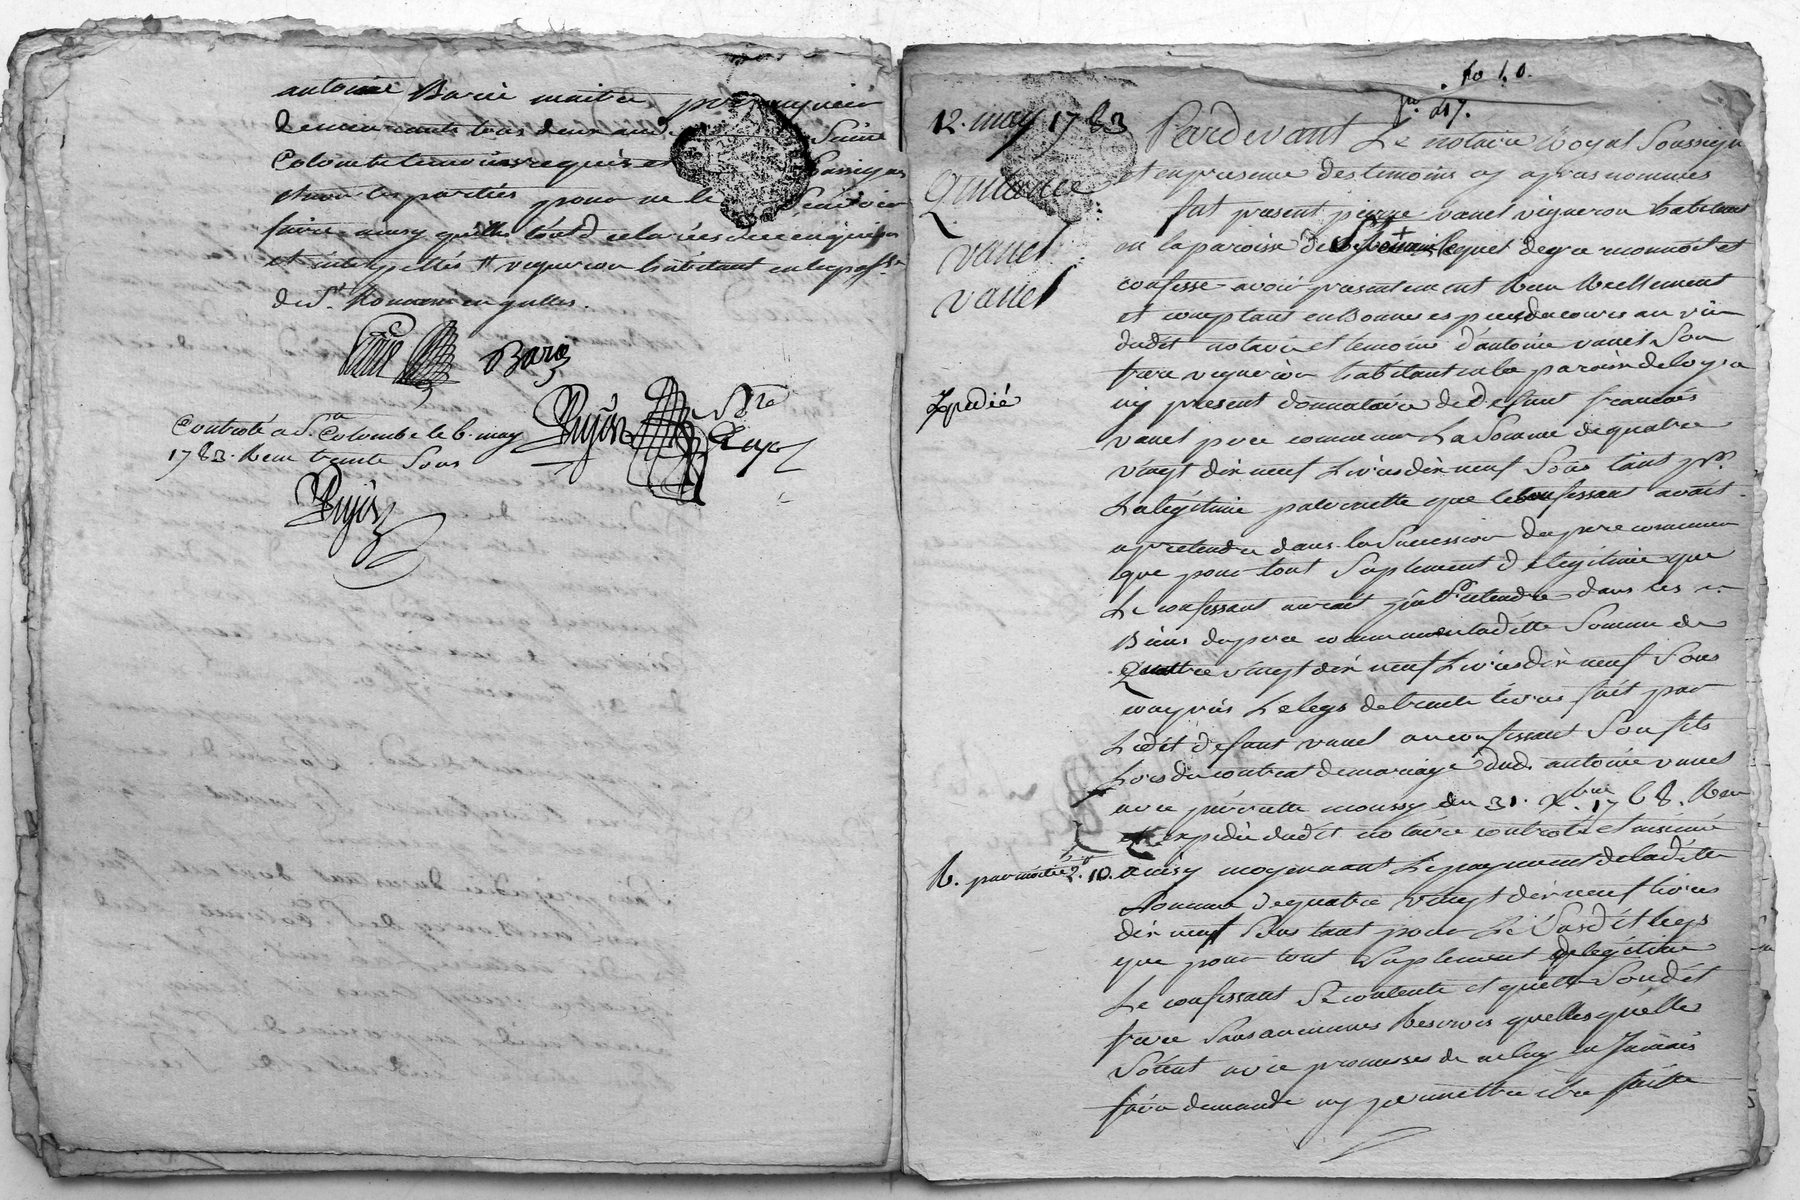 antoine Barie maitre perruquier
demeurants tous deux aud. Sainte
Colombe temoins requis et soussignes
et non les parties pour ne le scavoir
faire ainsy qu'ils tout declarées de ce enquis
et interpellés # vigneron habitant en la par.
de St. Romain en galles.
Barie
Pujos
Controlé a Ste. Colombe le 6. may
1783. Reçu trente Sous
Pujos
fo 10.
12. may 1783
Pardevant Le notaire Royal Soussigné
et en presence des temoins cy apres nommes
Quittance
fut present pierre vanel vigneron habitant
en la paroisse de lequel de gre reconnoit et
vanel
confesse avoir presentement Reçu Reellement
vanel
et comptant en Bonnes especes de cours au vû
dudit notaire et temoins d'antoine vanel Son
frere vigneron habitant en la paroisse de loyre
Expedié
icy present donnataire de deffunt francois
vanel pere commun La Somme de quatre
vingt dix neuf Livres dix neuf Sous tant pr.
La légitime paternelle que le confessant avait
a pretendre dans la Succession du pere commun
que pour tout Suplement de légitime que
Le confessant auroit pu pretendre dans les
Biens du pere commun ladite Somme de
Quattre vingt dix neuf Livres dix neuf Sous
compris Le legs de trente livres fait par
Ledit defunt vanel au confessant Son fils
Lors du contrat de mariage dud. antoine vanel
avec pierrette moussy du 31. Xbre 1768. Reçu
et expedié dudit notaire controlé et insinué
R. par moitié 2. 10. ainsy moyennant Le payement de ladite
Somme de quatre vingt dix neuf livres
dix neuf Sous tant pour Le Susdit legs
que pour tout Suplement de légitime
Le confessant Se contente et quitte Sondit
frere Sans aucunes Reserves quelles qu'elles
Soient avec promesses de ne luy en Jamais
faire demande ny permettre etre faitte